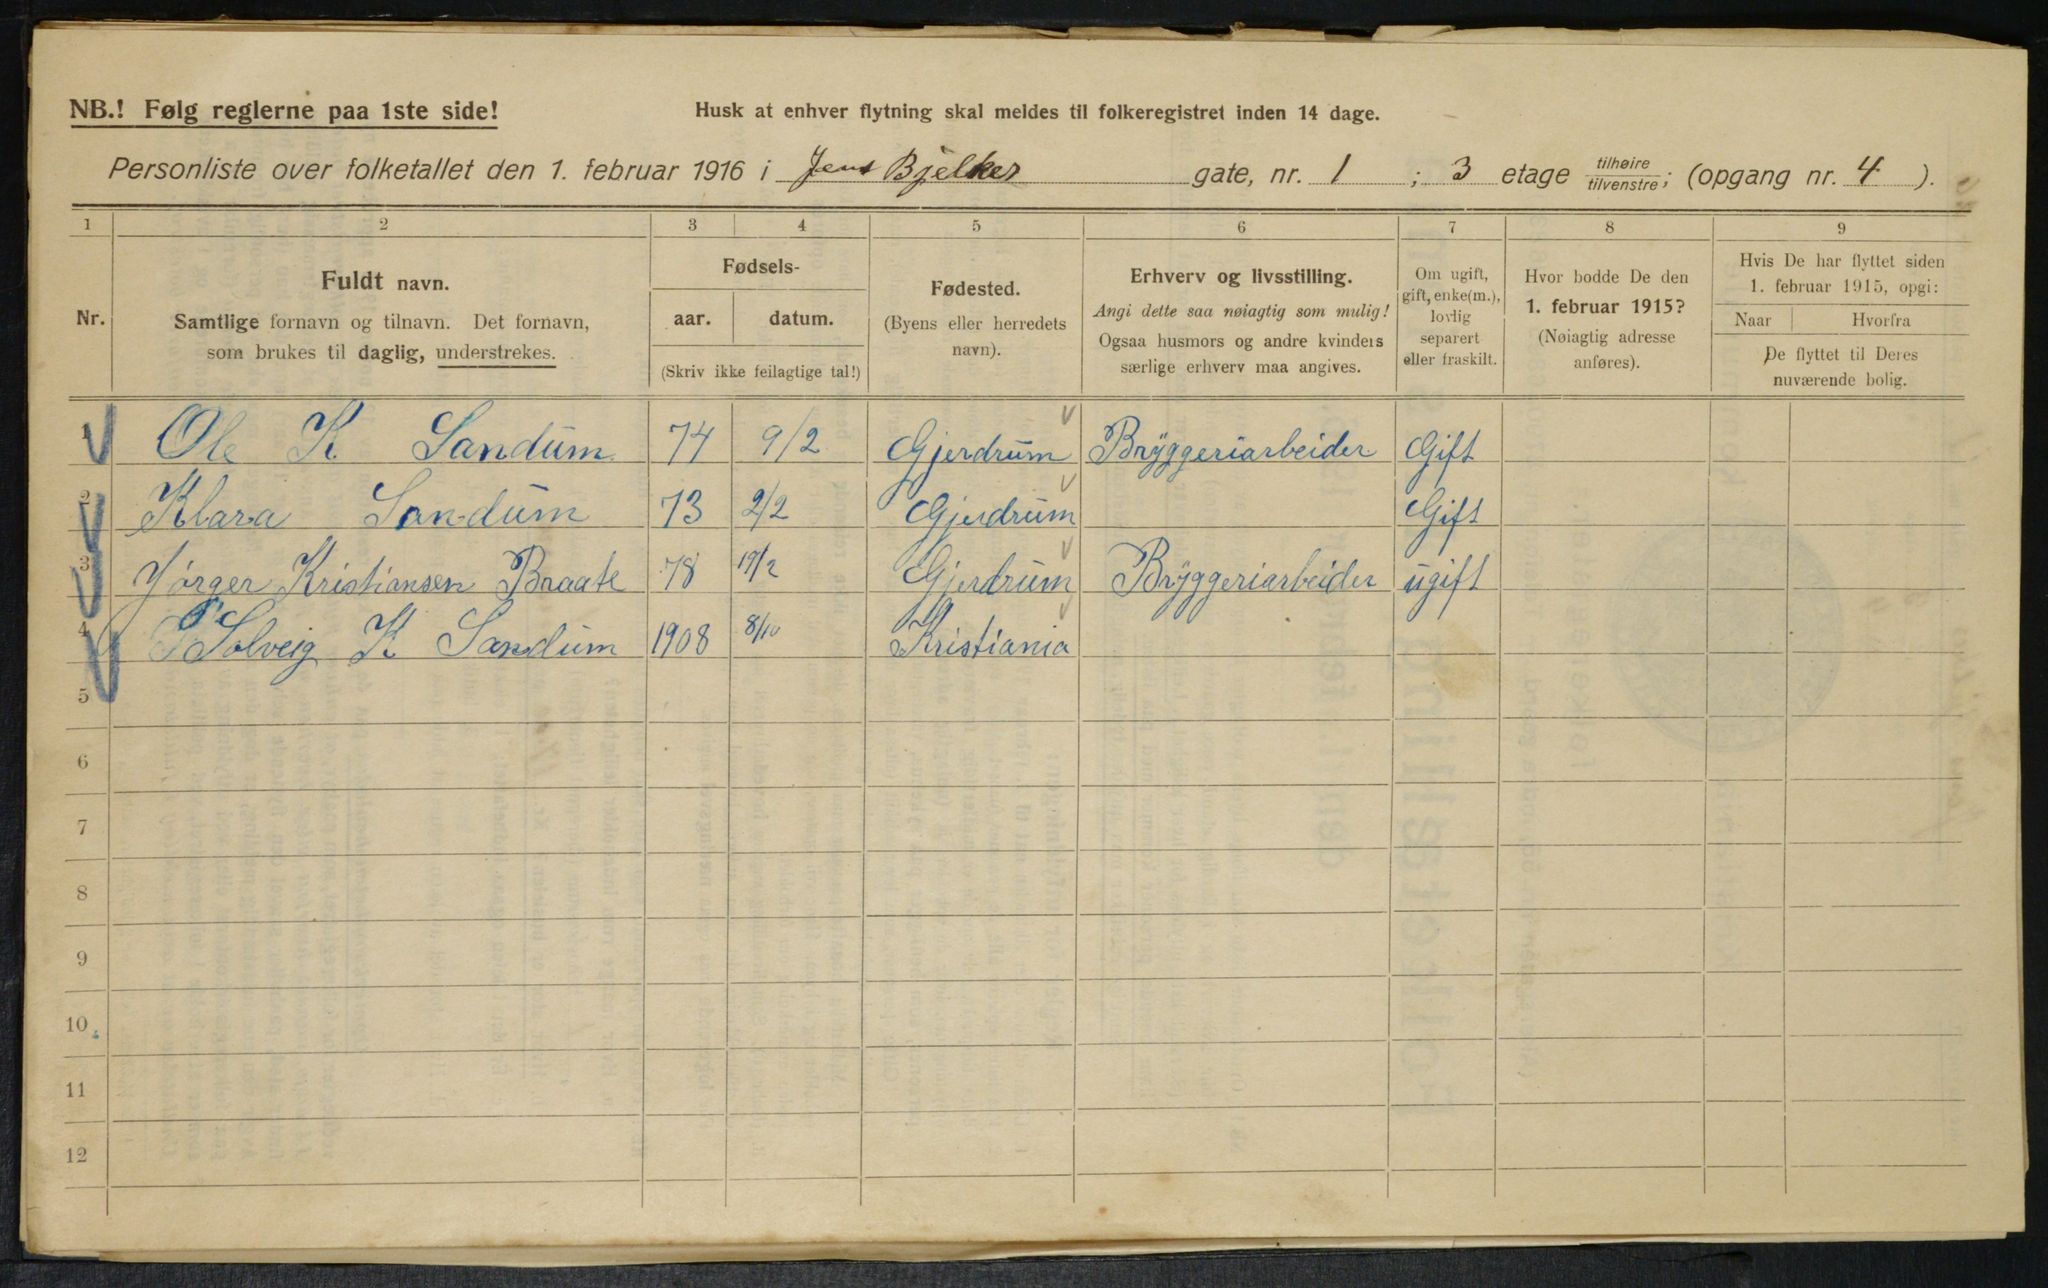 NB.! Følg reglerne paa 1ste side!
Husk at enhver flytning skal meldes til folkeregistret inden 14 dage.
Personliste over folketallet den 1. februar 1916 i Jens Bjelkes gate, nr. 1 ; 3 etage tilhøire/tilvenstre; (opgang nr. 4 ).
1 2 3 4 5 6 7 8 9
Nr.
Fuldt navn.
Samtlige fornavn og tilnavn. Det fornavn,
som brukes til daglig, understrekes.
Fødsels-
aar. datum.
(Skriv ikke feilagtige tal!)
Fødested.
(Byens eller herredets
navn).
Erhverv og livsstilling.
Angi dette saa nøiagtig som mulig!
Ogsaa husmors og andre kvinders
særlige erhverv maa angives.
Om ugift,
gift, enke(m.),
lovlig
separert
eller fraskilt.
Hvor bodde De den
1. februar 1915?
(Nøiagtig adresse
anføres).
Hvis De har flyttet siden
1. februar 1915, opgi:
Naar Hvorfra
De flyttet til Deres
nuværende bolig.
1 Ole K Sandum 74 9/2 Gjerdrum Bryggeriarbeider Gift
2 Klara Sandum 73 2/2 Gjerdrum Gift
3 Jørger Kristiansen Braate 78 19/2 Gjerdrum Bryggeriarbeider ugift
4 Solveig K Sandum 1908 8/10 Kristiania
5
6
7
8
9
10
11
12